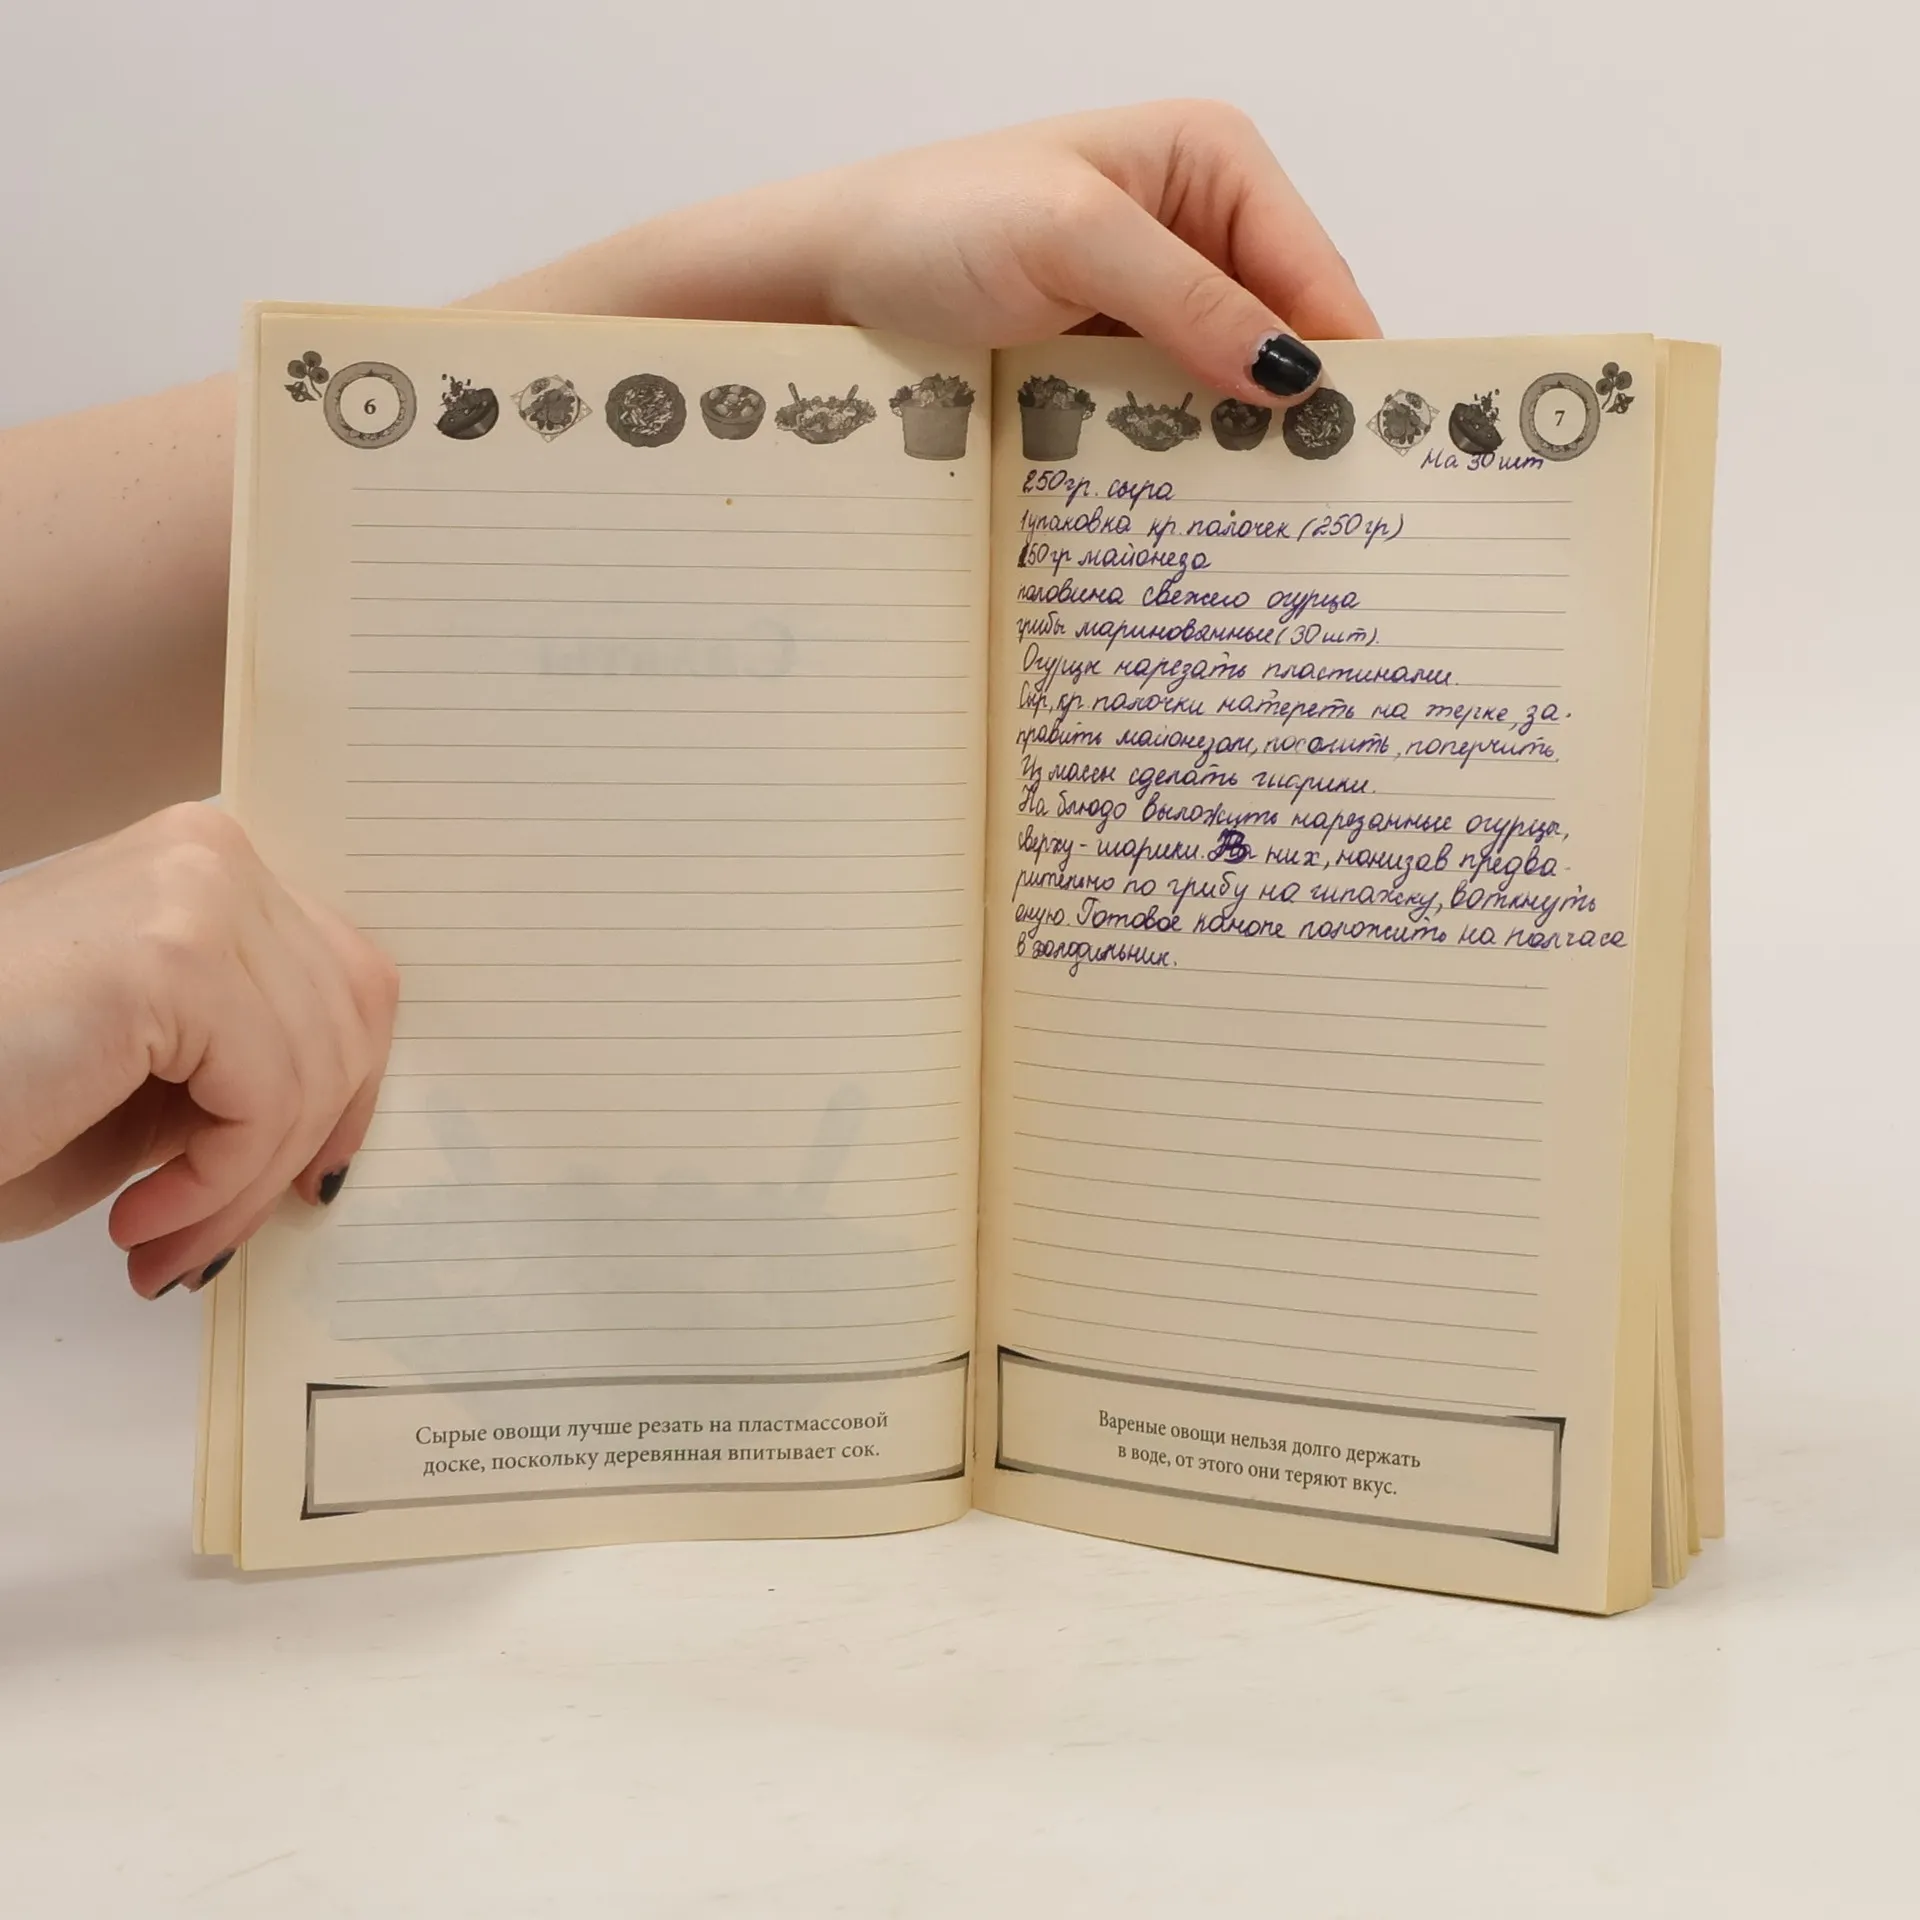 6
Сырые овощи лучше резать на пластмассовой
доске, поскольку деревянная впитывает сок.
7
На 30 шт
250гр. сыра
1упаковка кр. палочек (250гр)
150гр майонеза
половина свежего огурца
грибы маринованные (30 шт).
Огурцы нарезать пластинами.
Сыр, кр. палочки натереть на терке, за-
править майонезом, посолить, поперчить.
Из массы сделать шарики.
На блюдо выложить нарезанные огурцы,
сверху - шарики. В них, нанизав предва-
рительно по грибу на шпажку, воткнуть
оную. Готовое канапе положить на полчаса
в холодильник.
Вареные овощи нельзя долго держать
в воде, от этого они теряют вкус.